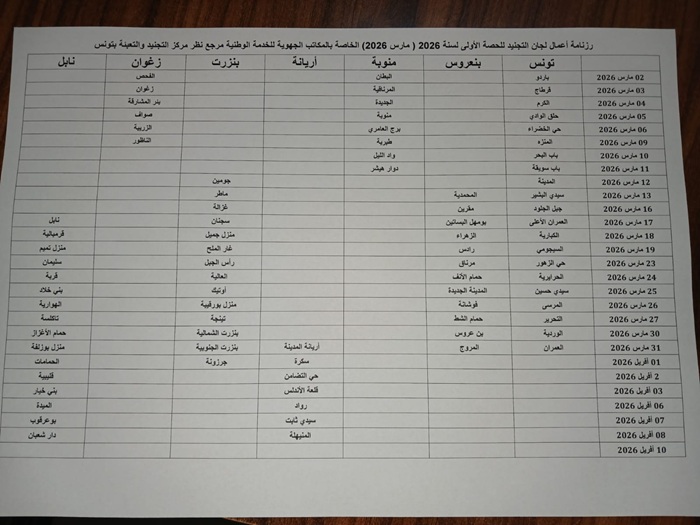 رزنامة أعمال لجان التجنيد للحصة الأولى لسنة 2026 ( مارس 2026) الخاصة بالمكاتب الجهوية للخدمة الوطنية مرجع نظر مركز التجنيد والتعبئة بتونس
تونس بنعروس منوبة أريانة بنزرت زغوان نابل
02 مارس 2026 باردو البطان الفحص
03 مارس 2026 قرطاج المرناقية زغوان
04 مارس 2026 الكرم الجديدة بئر المشارقة
05 مارس 2026 حلق الوادي منوبة صواف
06 مارس 2026 حي الخضراء برج العامري الزريبة
09 مارس 2026 المنزه طبربة الناظور
10 مارس 2026 باب البحر واد الليل
11 مارس 2026 باب سويقة دوار هيشر
12 مارس 2026 المدينة جومين
13 مارس 2026 سيدي البشير المحمدية ماطر
16 مارس 2026 جبل الجلود مقرين غزالة
17 مارس 2026 العمران الأعلى بومهل البساتين سجنان نابل
18 مارس 2026 الكبارية الزهراء منزل جميل قرمبالية
19 مارس 2026 السيجومي رادس غار الملح منزل تميم
23 مارس 2026 حي الزهور مرناق رأس الجبل سليمان
24 مارس 2026 الحرايرية حمام الأنف العالية قربة
25 مارس 2026 سيدي حسين المدينة الجديدة أوتيك بني خلاد
26 مارس 2026 المرسى فوشانة منزل بورقيبة الهوارية
27 مارس 2026 التحرير حمام الشط تينجة تاكلسة
30 مارس 2026 الوردية بن عروس بنزرت الشمالية حمام الأغزاز
31 مارس 2026 العمران المروج أريانة المدينة بنزرت الجنوبية منزل بوزلفة
01 أفريل 2026 سكرة جرزونة الحمامات
2 أفريل 2026 حي التضامن قليبية
03 أفريل 2026 قلعة الأندلس بني خيار
06 أفريل 2026 رواد الميدة
07 أفريل 2026 سيدي ثابت بوعرقوب
08 أفريل 2026 المنيهلة دار شعبان
10 أفريل 2026